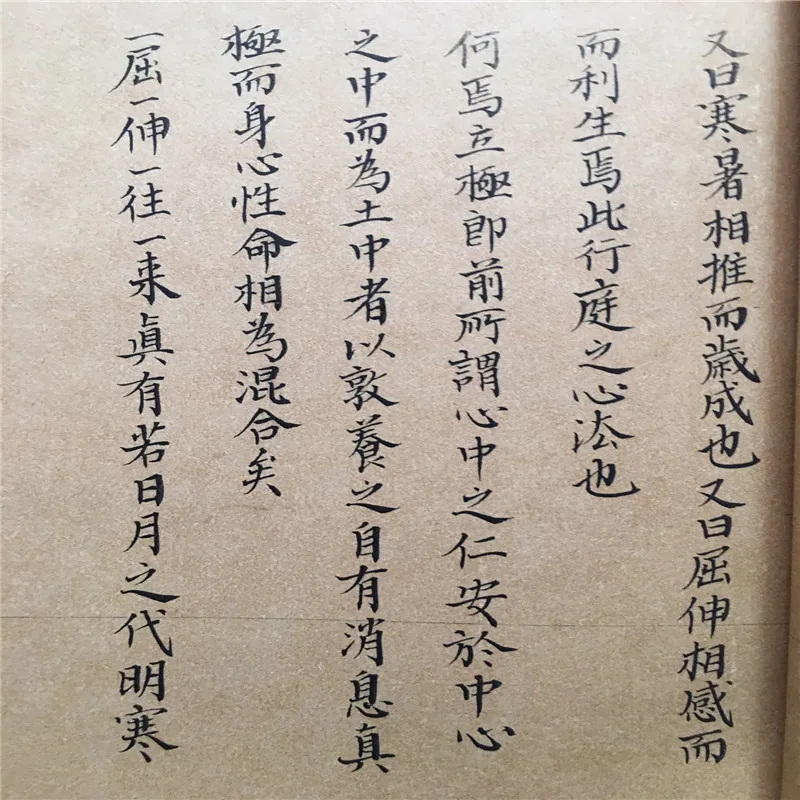 又曰寒暑相推而歲成也又曰屈伸相感而
而利生焉此行庭之心法也
何焉立極即前所謂心中之仁安於中心
之中而為土中者以敦養之自有消息真
極而身心性命相為混合矣
一屈一伸一往一来真有若日月之代明寒